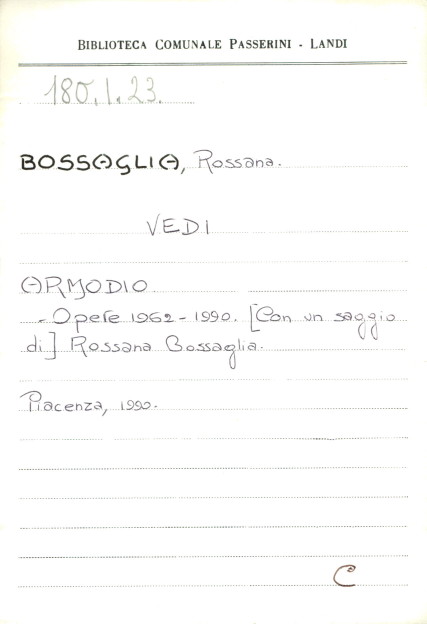 BIBLIOTECA COMUNALE PASSERINI - LANDI
180.I.23.
BOSSAGLIA, Rossana.
VEDI
ARMODIO
- Opere 1962 - 1990. [Con un saggio
di] Rossana Bossaglia.
Piacenza, 1990.
C